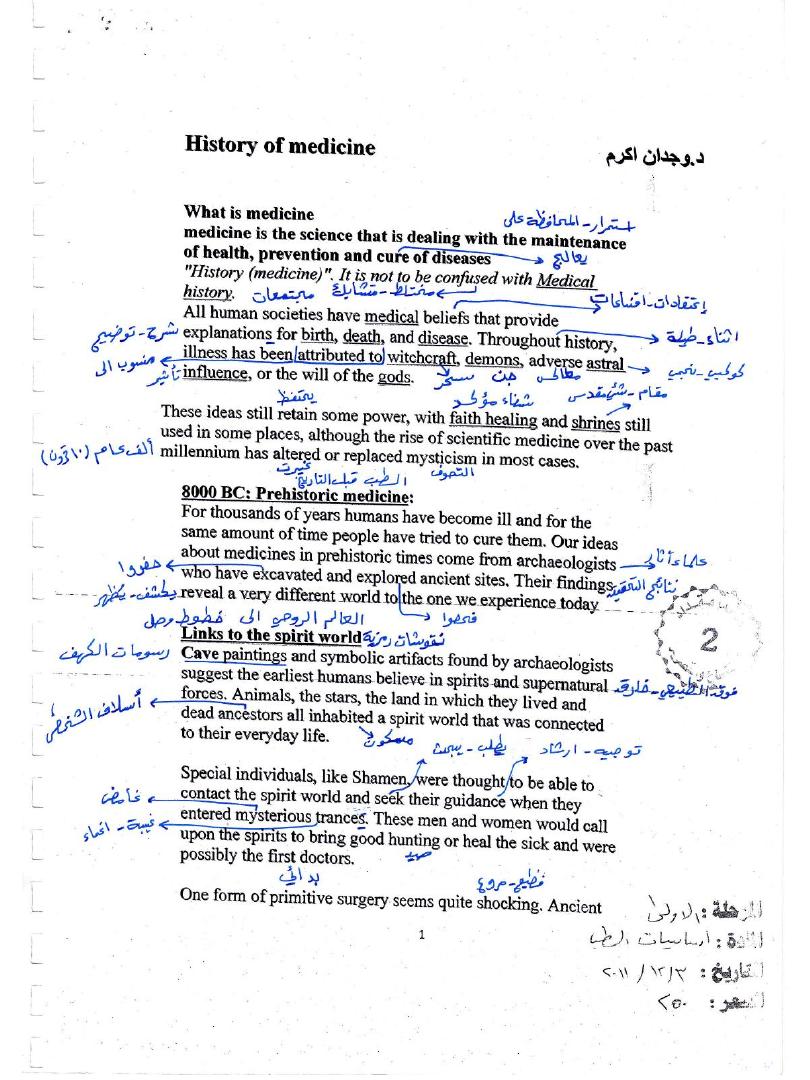 History of medicine
د.وجدان اكرم
What is medicine
استمرار - المحافظة على
medicine is the science that is dealing with the maintenance
of health, prevention and cure of diseases
يعالج
"History (medicine)". It is not to be confused with Medical
history.
مختلط - متشابك
مجتمعات
إعتقادات -
All human societies have medical beliefs that provide
explanations for birth, death, and disease. Throughout history,
شرح - توضيح
اثناء - طيلة
illness has been attributed to witchcraft, demons, adverse astral
منسوب الى
كوكبي - نجمي
influence, or the will of the gods.
تأثير
سحر
جن
مقام - شئ مقدس
يحتفظ
شفاء مؤكد
These ideas still retain some power, with faith healing and shrines still
used in some places, although the rise of scientific medicine over the past
millennium has altered or replaced mysticism in most cases.
ألف عام (١٠ قرون)
غيرت
التصوف
الطب قبل التاريخ
8000 BC: Prehistoric medicine:
For thousands of years humans have become ill and for the
same amount of time people have tried to cure them. Our ideas
about medicines in prehistoric times come from archaeologists
علماء آثار
who have excavated and explored ancient sites. Their findings
حفروا
نتائج التنقيب
reveal a very different world to the one we experience today
يكشف - يظهر
فحصوا
خطوط وصل الى العالم الروحي
Links to the spirit world
نقوشات رمزية
Cave paintings and symbolic artifacts found by archaeologists
رسومات الكهف
suggest the earliest humans believe in spirits and supernatural
فوق الطبيعي - خارق
forces. Animals, the stars, the land in which they lived and
أسلاف الشخص
dead ancestors all inhabited a spirit world that was connected
to their everyday life.
مسكون
يطلب - يبحث
توجيه - ارشاد
2
Special individuals, like Shamen, were thought to be able to
contact the spirit world and seek their guidance when they
غامض
entered mysterious trances. These men and women would call
غيبة - اغماء
upon the spirits to bring good hunting or heal the sick and were
possibly the first doctors.
صيد
بدائي
فظيع - مروع
One form of primitive surgery seems quite shocking. Ancient
1
المرحلة : الاولى
المادة : اساسيات الطب
التاريخ : ٢٠١١/١٢/٣
السعر : ٢٥٠